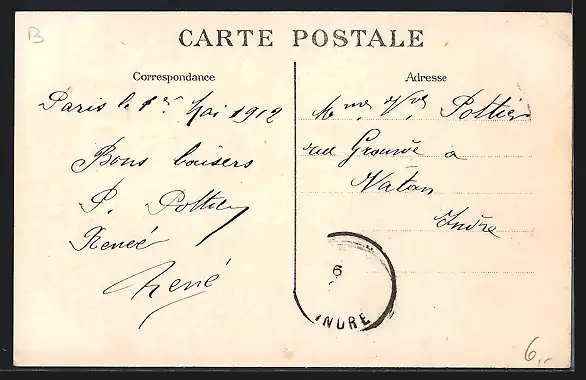 B
CARTE POSTALE
Correspondance
Paris le 1er Mai 1912
Bons baisers
P. Pottier
Renée
René
Adresse
Mme Vve Pottier
rue Grande à
Vatan
Indre
6
INDRE
6,-